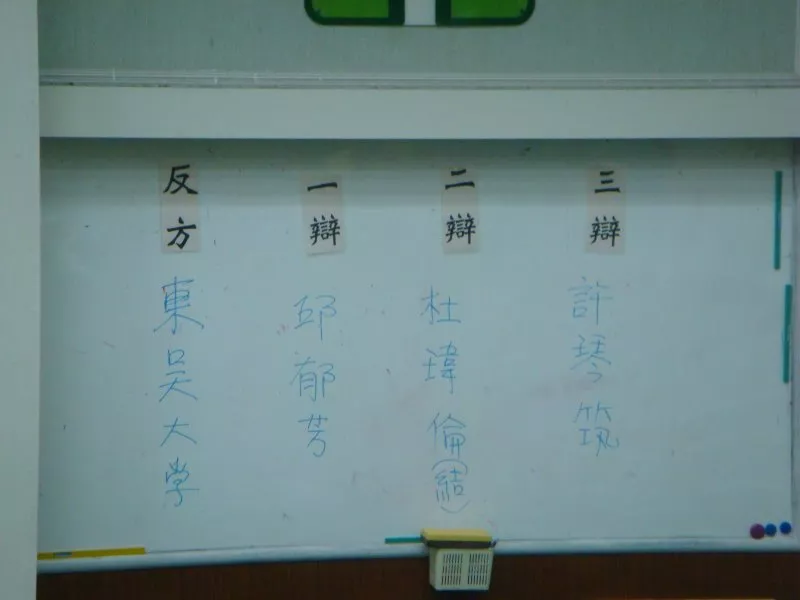 反方
東吳大学
一辯
邱郁芳
二辯
杜瑋倫(結)
三辯
許琴筑